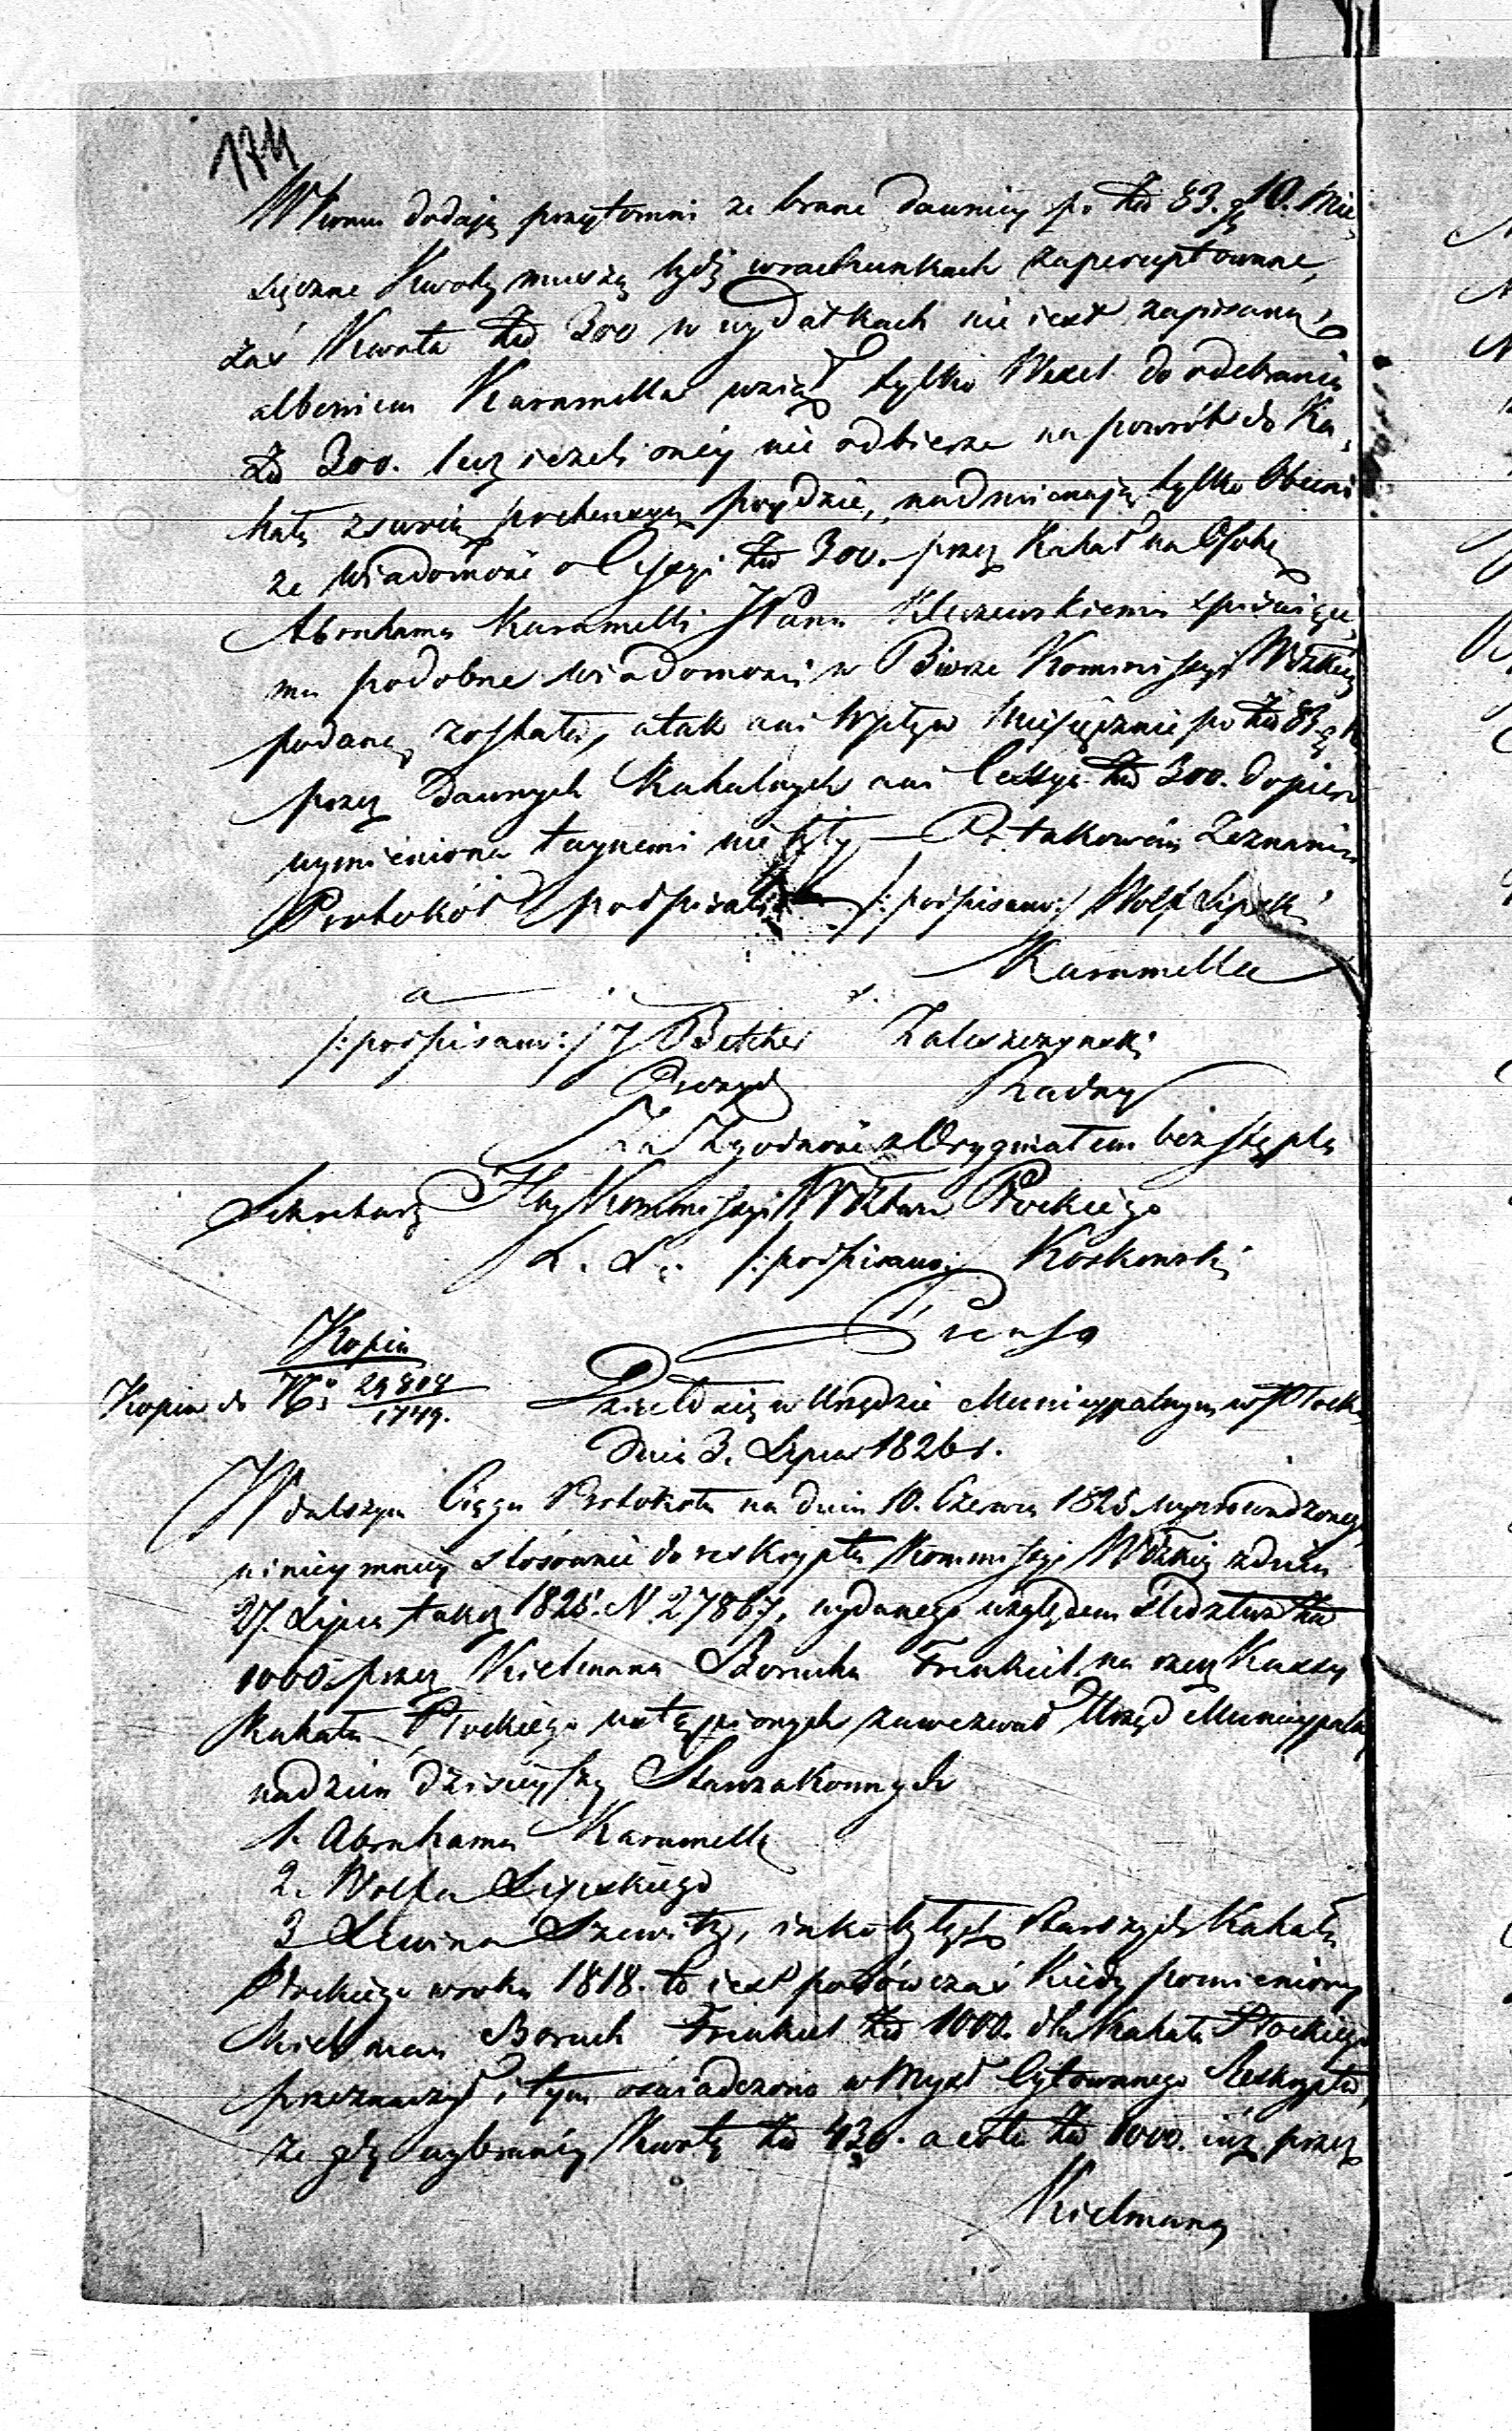 174
W tem dodają przytomni ze brane dawniey po Złł 83. gr 10. Mie
sięczne Kwoty muszą bydź w rachunkach zaperceptowane,
zaś Kwota Złł 300 w wydatkach nie iest zapisana,
albowiem Karamella wziął tylko Wexel do odebrania
Złł 300. lecz iezeli oney nie odbierze na powrót do Ka,
hału z swoią pretensyą przydzie, nadmieniaią tylko Obecni
ze wiadomość o Cessyi Złł 300. przez Kahał na Osobę
Abrahama Karamelli JPanu Kleczewskiemu
mu podobne wiadomosci w Biurze Kommissyi Wdzkiey
podaną została, a tak ani Wpływ Miesięcznie po Złł 83. gr 10
przez Dawnych Kahalnych ani Cessya Złł 300. dopiero
wymieniona taynemi nie były — Po takowém Zeznaniu
Protokół podpisali /:podpisano:/ Wolf Lipski
Karamella
a
/:podpisano:/ J Betcher Zaleszczynski
Prezyd Radny
Za Zgodność z Oryginałem bez stępla
Sekretarz Jlny Kommissyi Wdztwa Płockiego
L. S. /:podpisano:/ Koskowski
Kopia
Kopia do No 29808/1749.
Działo się w Urzędzie Municypalnym w Płocku
Dnia 3. Lipca 1826 r.
W dalszym Ciągu Protokołu na dniu 10. Czerwca 1825 wyprowadzonego
niniey mniey stosownie do reskryptu Kommissyi Wdzkiey z dnia
27. Lipca także 1825. N 27867, wydanego względem śledztwa Złł
1000 przez Kielmana Borucha Frenkiel na rzecz Kassy
Kahału Płockiego ustąpionych zawezwał Urząd Municypalny
na dzień dzisieyszy Starzakonnych
1. Abrahama Karamellę
2. Wolfa Lipskiego
3 Lewina Szewitz, iako byłych Starszych Kahału
Płockiego w roku 1818. to iest podówczas Kiedy pomieniony
Kielman Boruch Frenkiel Złł 1000. dla Kahału Płockiego
przeznaczył, i tym oświadczono w Myśl Cytowanego Reskryptu,
ze gdy wybraney Kwoty Złł 430. a coła Złł 1000. iuz przez
Kielmana